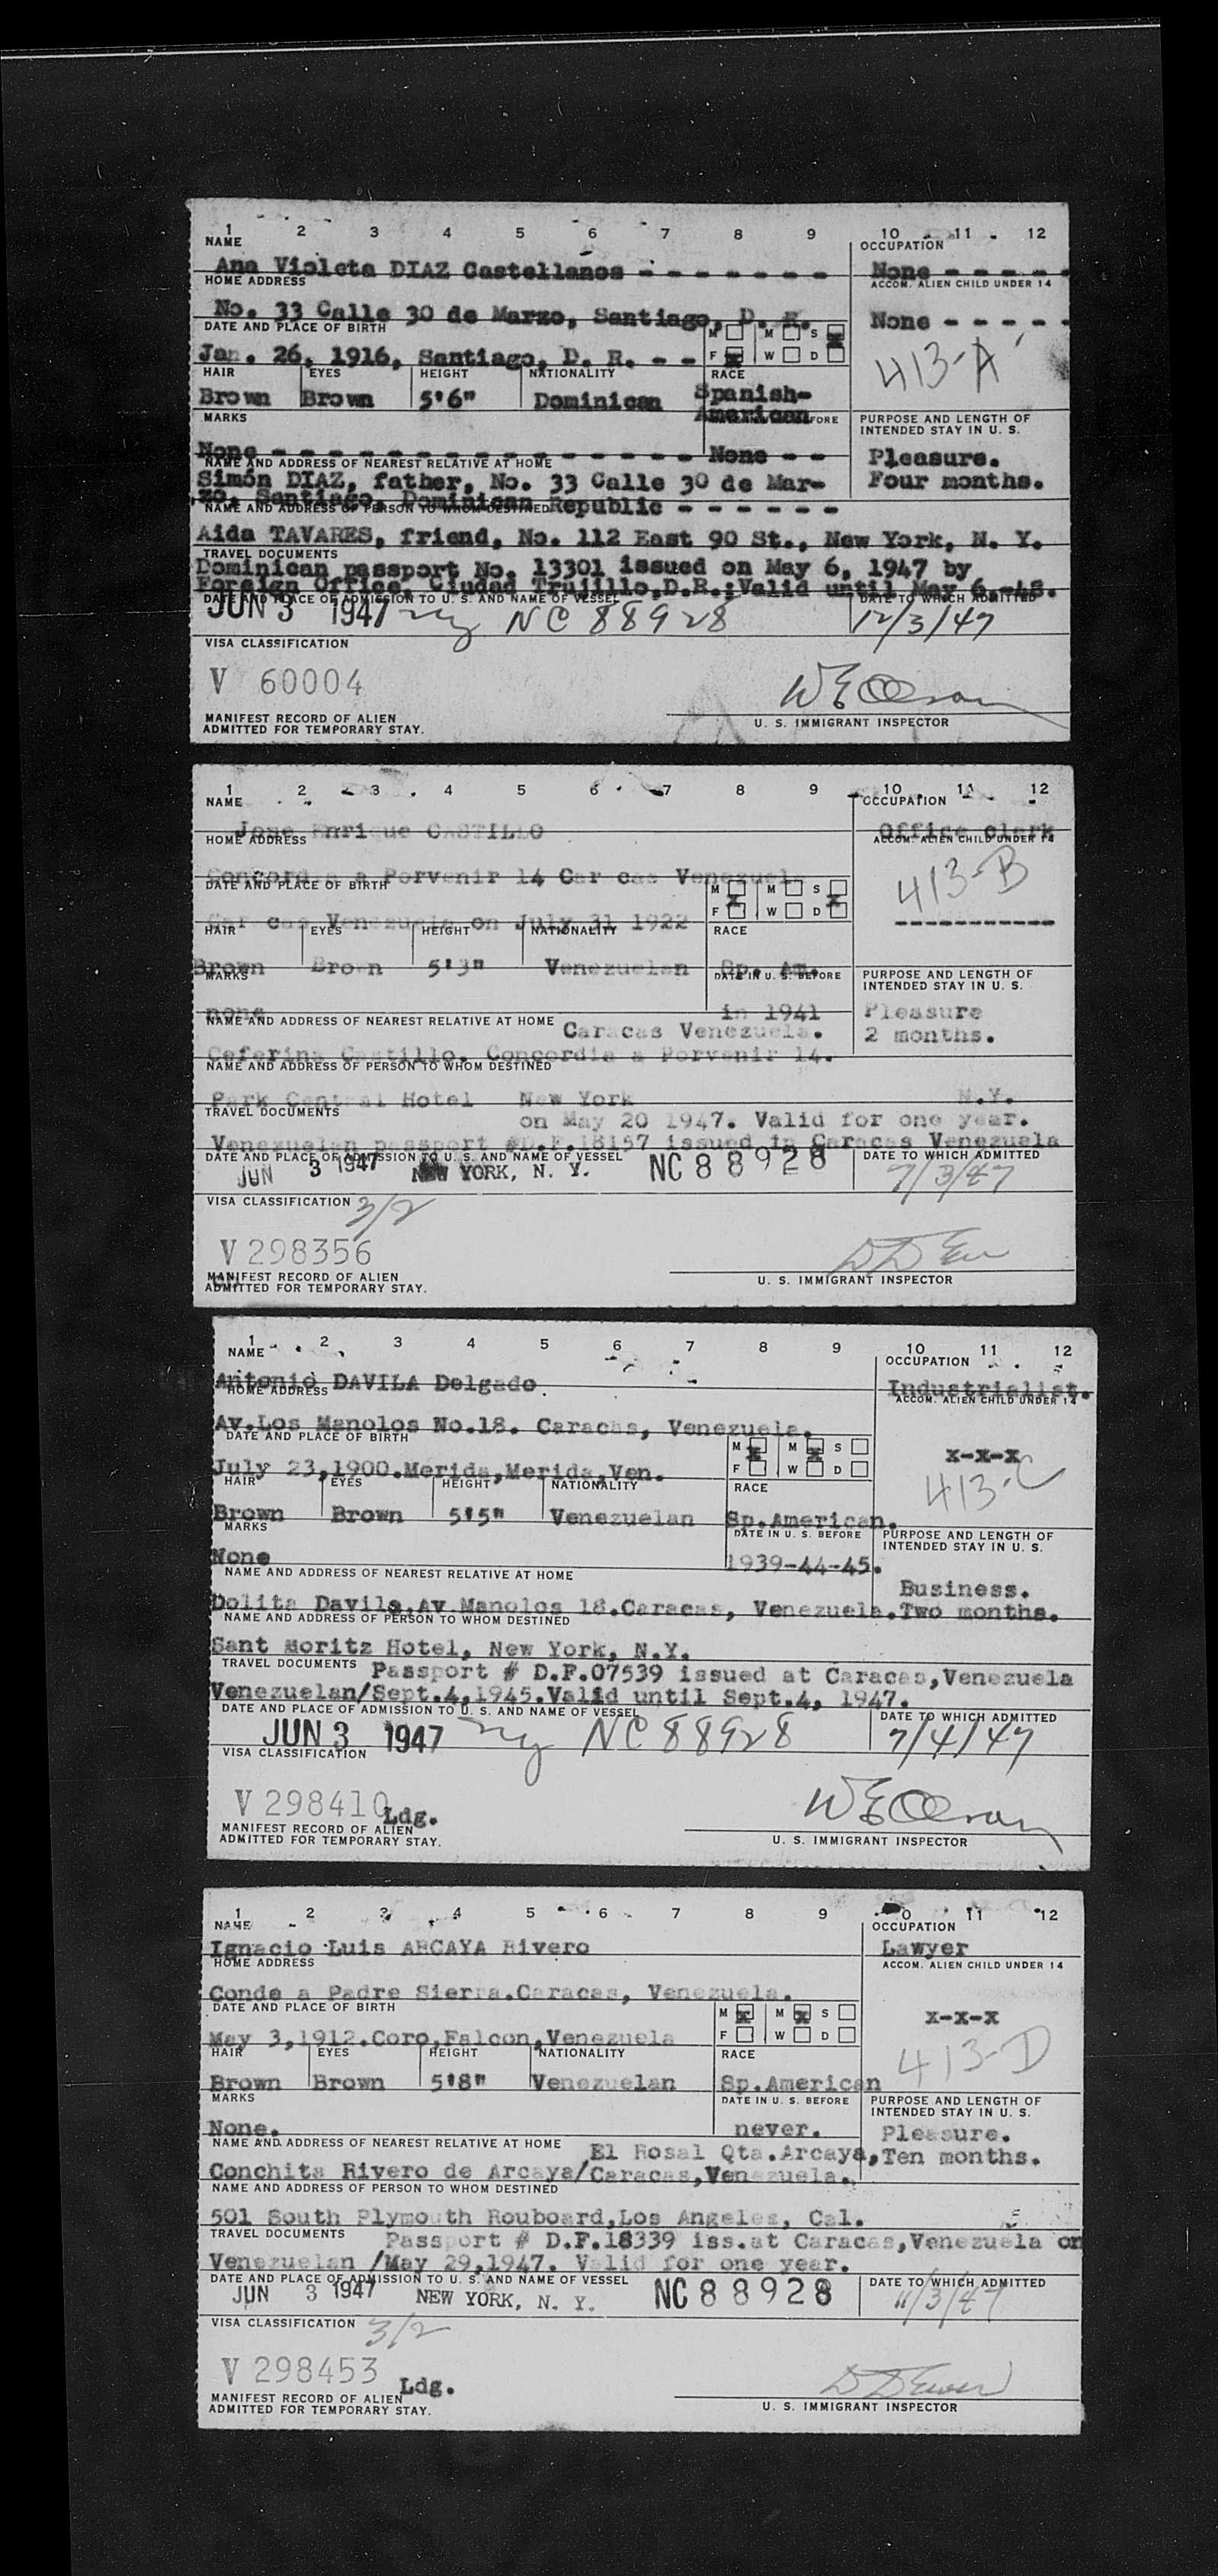 1 2 3 4 5 6 7 8 9 10 11 12
NAME OCCUPATION
Ana Violeta DIAZ Castellanos - - - - - - - None - - - - -
HOME ADDRESS ACCOM. ALIEN CHILD UNDER 14
No. 33 Calle 30 de Marzo, Santiago, D. R. None - - - - -
DATE AND PLACE OF BIRTH M M S
Jan. 26, 1916, Santiago, D. R. - - F X W D 413-A
HAIR EYES HEIGHT NATIONALITY RACE
Brown Brown 5'6" Dominican Spanish-
American
MARKS FORE PURPOSE AND LENGTH OF
INTENDED STAY IN U. S.
None - - - - - - - - - - - - - - - None - - Pleasure.
NAME AND ADDRESS OF NEAREST RELATIVE AT HOME
Simón DIAZ, father, No. 33 Calle 30 de Mar- Four months.
zo, Santiago, Dominican Republic - - - - - -
NAME AND ADDRESS OF PERSON TO WHOM DESTINED
Aida TAVARES, friend, No. 112 East 90 St., New York, N. Y.
TRAVEL DOCUMENTS
Dominican passport No. 13301 issued on May 6, 1947 by
Foreign Office, Ciudad Trujillo,D.R.;Valid until May 6,-48.
DATE AND PLACE OF ADMISSION TO U. S. AND NAME OF VESSEL DATE TO WHICH ADMITTED
JUN 3 1947 ny NC 88928 12/3/47
VISA CLASSIFICATION
V 60004 W E Olson
MANIFEST RECORD OF ALIEN
ADMITTED FOR TEMPORARY STAY. U. S. IMMIGRANT INSPECTOR
1 2 3 4 5 6 7 8 9 10 11 12
NAME OCCUPATION
Jose Enrique CASTILLO Office clerk
HOME ADDRESS ACCOM. ALIEN CHILD UNDER 14
Concordia a Porvenir 14 Caracas Venezuela 413-B
DATE AND PLACE OF BIRTH M M S
Caracas Venezuela on July 31 1922 F W D -----------
HAIR EYES HEIGHT NATIONALITY RACE
Brown Brown 5'3" Venezuelan Sp. Am.
MARKS DATE IN U. S. BEFORE PURPOSE AND LENGTH OF
INTENDED STAY IN U. S.
none in 1941 Pleasure
NAME AND ADDRESS OF NEAREST RELATIVE AT HOME Caracas Venezuela. 2 months.
Ceferina Castillo. Concordia a Porvenir 14.
NAME AND ADDRESS OF PERSON TO WHOM DESTINED
Park Central Hotel New York N.Y.
TRAVEL DOCUMENTS on May 20 1947. Valid for one year.
Venezuelan passport #D.F.18157 issued in Caracas Venezuela
DATE AND PLACE OF ADMISSION TO U. S. AND NAME OF VESSEL DATE TO WHICH ADMITTED
JUN 3 1947 NEW YORK, N. Y. NC 88928 7/3/47
VISA CLASSIFICATION 3/2
V 298356
MANIFEST RECORD OF ALIEN
ADMITTED FOR TEMPORARY STAY. U. S. IMMIGRANT INSPECTOR
1 2 3 4 5 6 7 8 9 10 11 12
NAME OCCUPATION
Antonio DAVILA Delgado. Industrialist.
HOME ADDRESS ACCOM. ALIEN CHILD UNDER 14
Av.Los Manolos No.18. Caracas, Venezuela.
DATE AND PLACE OF BIRTH M X M X S X-X-X
July 23,1900.Merida,Merida,Ven. F W D 413-C
HAIR EYES HEIGHT NATIONALITY RACE
Brown Brown 5'5" Venezuelan Sp.American.
MARKS DATE IN U. S. BEFORE PURPOSE AND LENGTH OF
INTENDED STAY IN U. S.
None 1939-44-45.
NAME AND ADDRESS OF NEAREST RELATIVE AT HOME Business.
Dolita Davila,Av.Manolos 18.Caracas, Venezuela.Two months.
NAME AND ADDRESS OF PERSON TO WHOM DESTINED
Sant Moritz Hotel, New York, N.Y.
TRAVEL DOCUMENTS Passport # D.F.07539 issued at Caracas,Venezuela
Venezuelan/Sept.4,1945.Valid until Sept.4, 1947.
DATE AND PLACE OF ADMISSION TO U. S. AND NAME OF VESSEL DATE TO WHICH ADMITTED
JUN 3 1947 ny NC 88928 7/4/47
VISA CLASSIFICATION
V 298410 Ldg. W E Olson
MANIFEST RECORD OF ALIEN
ADMITTED FOR TEMPORARY STAY. U. S. IMMIGRANT INSPECTOR
1 2 3 4 5 6 7 8 9 10 11 12
NAME OCCUPATION
Ignacio Luis ARCAYA Rivero Lawyer
HOME ADDRESS ACCOM. ALIEN CHILD UNDER 14
Conde a Padre Sierra.Caracas, Venezuela.
DATE AND PLACE OF BIRTH M X M X S X-X-X
May 3,1912.Coro,Falcon,Venezuela F W D
HAIR EYES HEIGHT NATIONALITY RACE 413-D
Brown Brown 5'8" Venezuelan Sp.American
MARKS DATE IN U. S. BEFORE PURPOSE AND LENGTH OF
INTENDED STAY IN U. S.
None. never. Pleasure.
NAME AND ADDRESS OF NEAREST RELATIVE AT HOME El Rosal Qta.Arcaya, Ten months.
Conchita Rivero de Arcaya/Caracas,Venezuela.
NAME AND ADDRESS OF PERSON TO WHOM DESTINED
501 South Plymouth Rouboard,Los Angeles, Cal.
TRAVEL DOCUMENTS Passport # D.F.18339 iss.at Caracas,Venezuela on
Venezuelan /May 29,1947. Valid for one year.
DATE AND PLACE OF ADMISSION TO U. S. AND NAME OF VESSEL DATE TO WHICH ADMITTED
JUN 3 1947 NEW YORK, N. Y. NC 88928 11/3/47
VISA CLASSIFICATION 3/2
V 298453 Ldg.
MANIFEST RECORD OF ALIEN
ADMITTED FOR TEMPORARY STAY. U. S. IMMIGRANT INSPECTOR